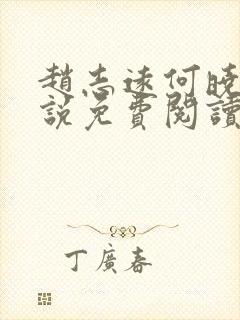 趙志遠何曉
說免費閱讀
丁廣春